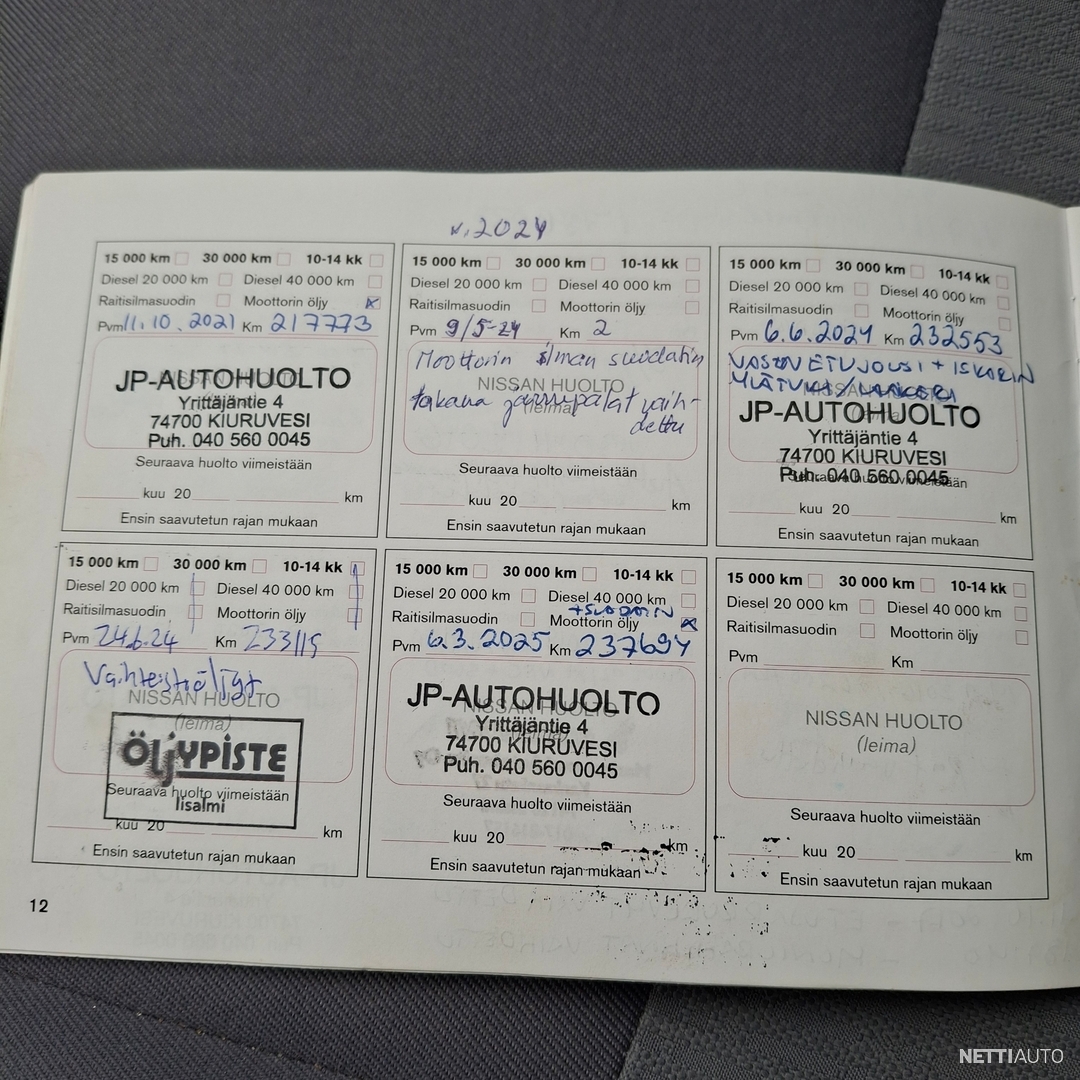 v. 2024
15 000 km 30 000 km 10-14 kk
Diesel 20 000 km Diesel 40 000 km
Raitisilmasuodin Moottorin öljy
Pvm 11.10.2021 Km 217773
JP-AUTOHUOLTO
Yrittäjäntie 4
74700 KIURUVESI
Puh. 040 560 0045
Seuraava huolto viimeistään
kuu 20 km
Ensin saavutetun rajan mukaan
15 000 km 30 000 km 10-14 kk
Diesel 20 000 km Diesel 40 000 km
Raitisilmasuodin Moottorin öljy
Pvm 9/5-24 Km 2
Moottorin ilman suodatin
NISSAN HUOLTO
takana jarrupalat vaih-
(leima)
dettu
Seuraava huolto viimeistään
kuu 20 km
Ensin saavutetun rajan mukaan
15 000 km 30 000 km 10-14 kk
Diesel 20 000 km Diesel 40 000 km
Raitisilmasuodin Moottorin öljy
Pvm 6.6.2024 Km 232553
VASEN ETUJOUSI + ISKARIN
YLÄTUKI/LAAKERI
JP-AUTOHUOLTO
Yrittäjäntie 4
74700 KIURUVESI
Puh. 040 560 0045
Seuraava huolto viimeistään
kuu 20 km
Ensin saavutetun rajan mukaan
15 000 km 30 000 km 10-14 kk
Diesel 20 000 km Diesel 40 000 km
Raitisilmasuodin Moottorin öljy
Pvm 24.6.24 Km 233119
Vaihteistoöljyt
NISSAN HUOLTO
(leima)
ÖLJYPISTE
Seuraava huolto viimeistään
Iisalmi
kuu 20 km
Ensin saavutetun rajan mukaan
15 000 km 30 000 km 10-14 kk
Diesel 20 000 km Diesel 40 000 km
+SUODATIN
Raitisilmasuodin Moottorin öljy
Pvm 6.3.2025 Km 237694
NISSAN HUOLTO
JP-AUTOHUOLTO
Yrittäjäntie 4
74700 KIURUVESI
Puh. 040 560 0045
Seuraava huolto viimeistään
kuu 20 km
Ensin saavutetun rajan mukaan
15 000 km 30 000 km 10-14 kk
Diesel 20 000 km Diesel 40 000 km
Raitisilmasuodin Moottorin öljy
Pvm Km
NISSAN HUOLTO
(leima)
Seuraava huolto viimeistään
kuu 20 km
Ensin saavutetun rajan mukaan
12
NETTIAUTO